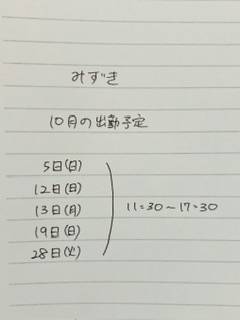 みずき
10月の出勤予定
5日(日)
12日(日)
13日(月) 11:30～17:30
19日(日)
28日(火)